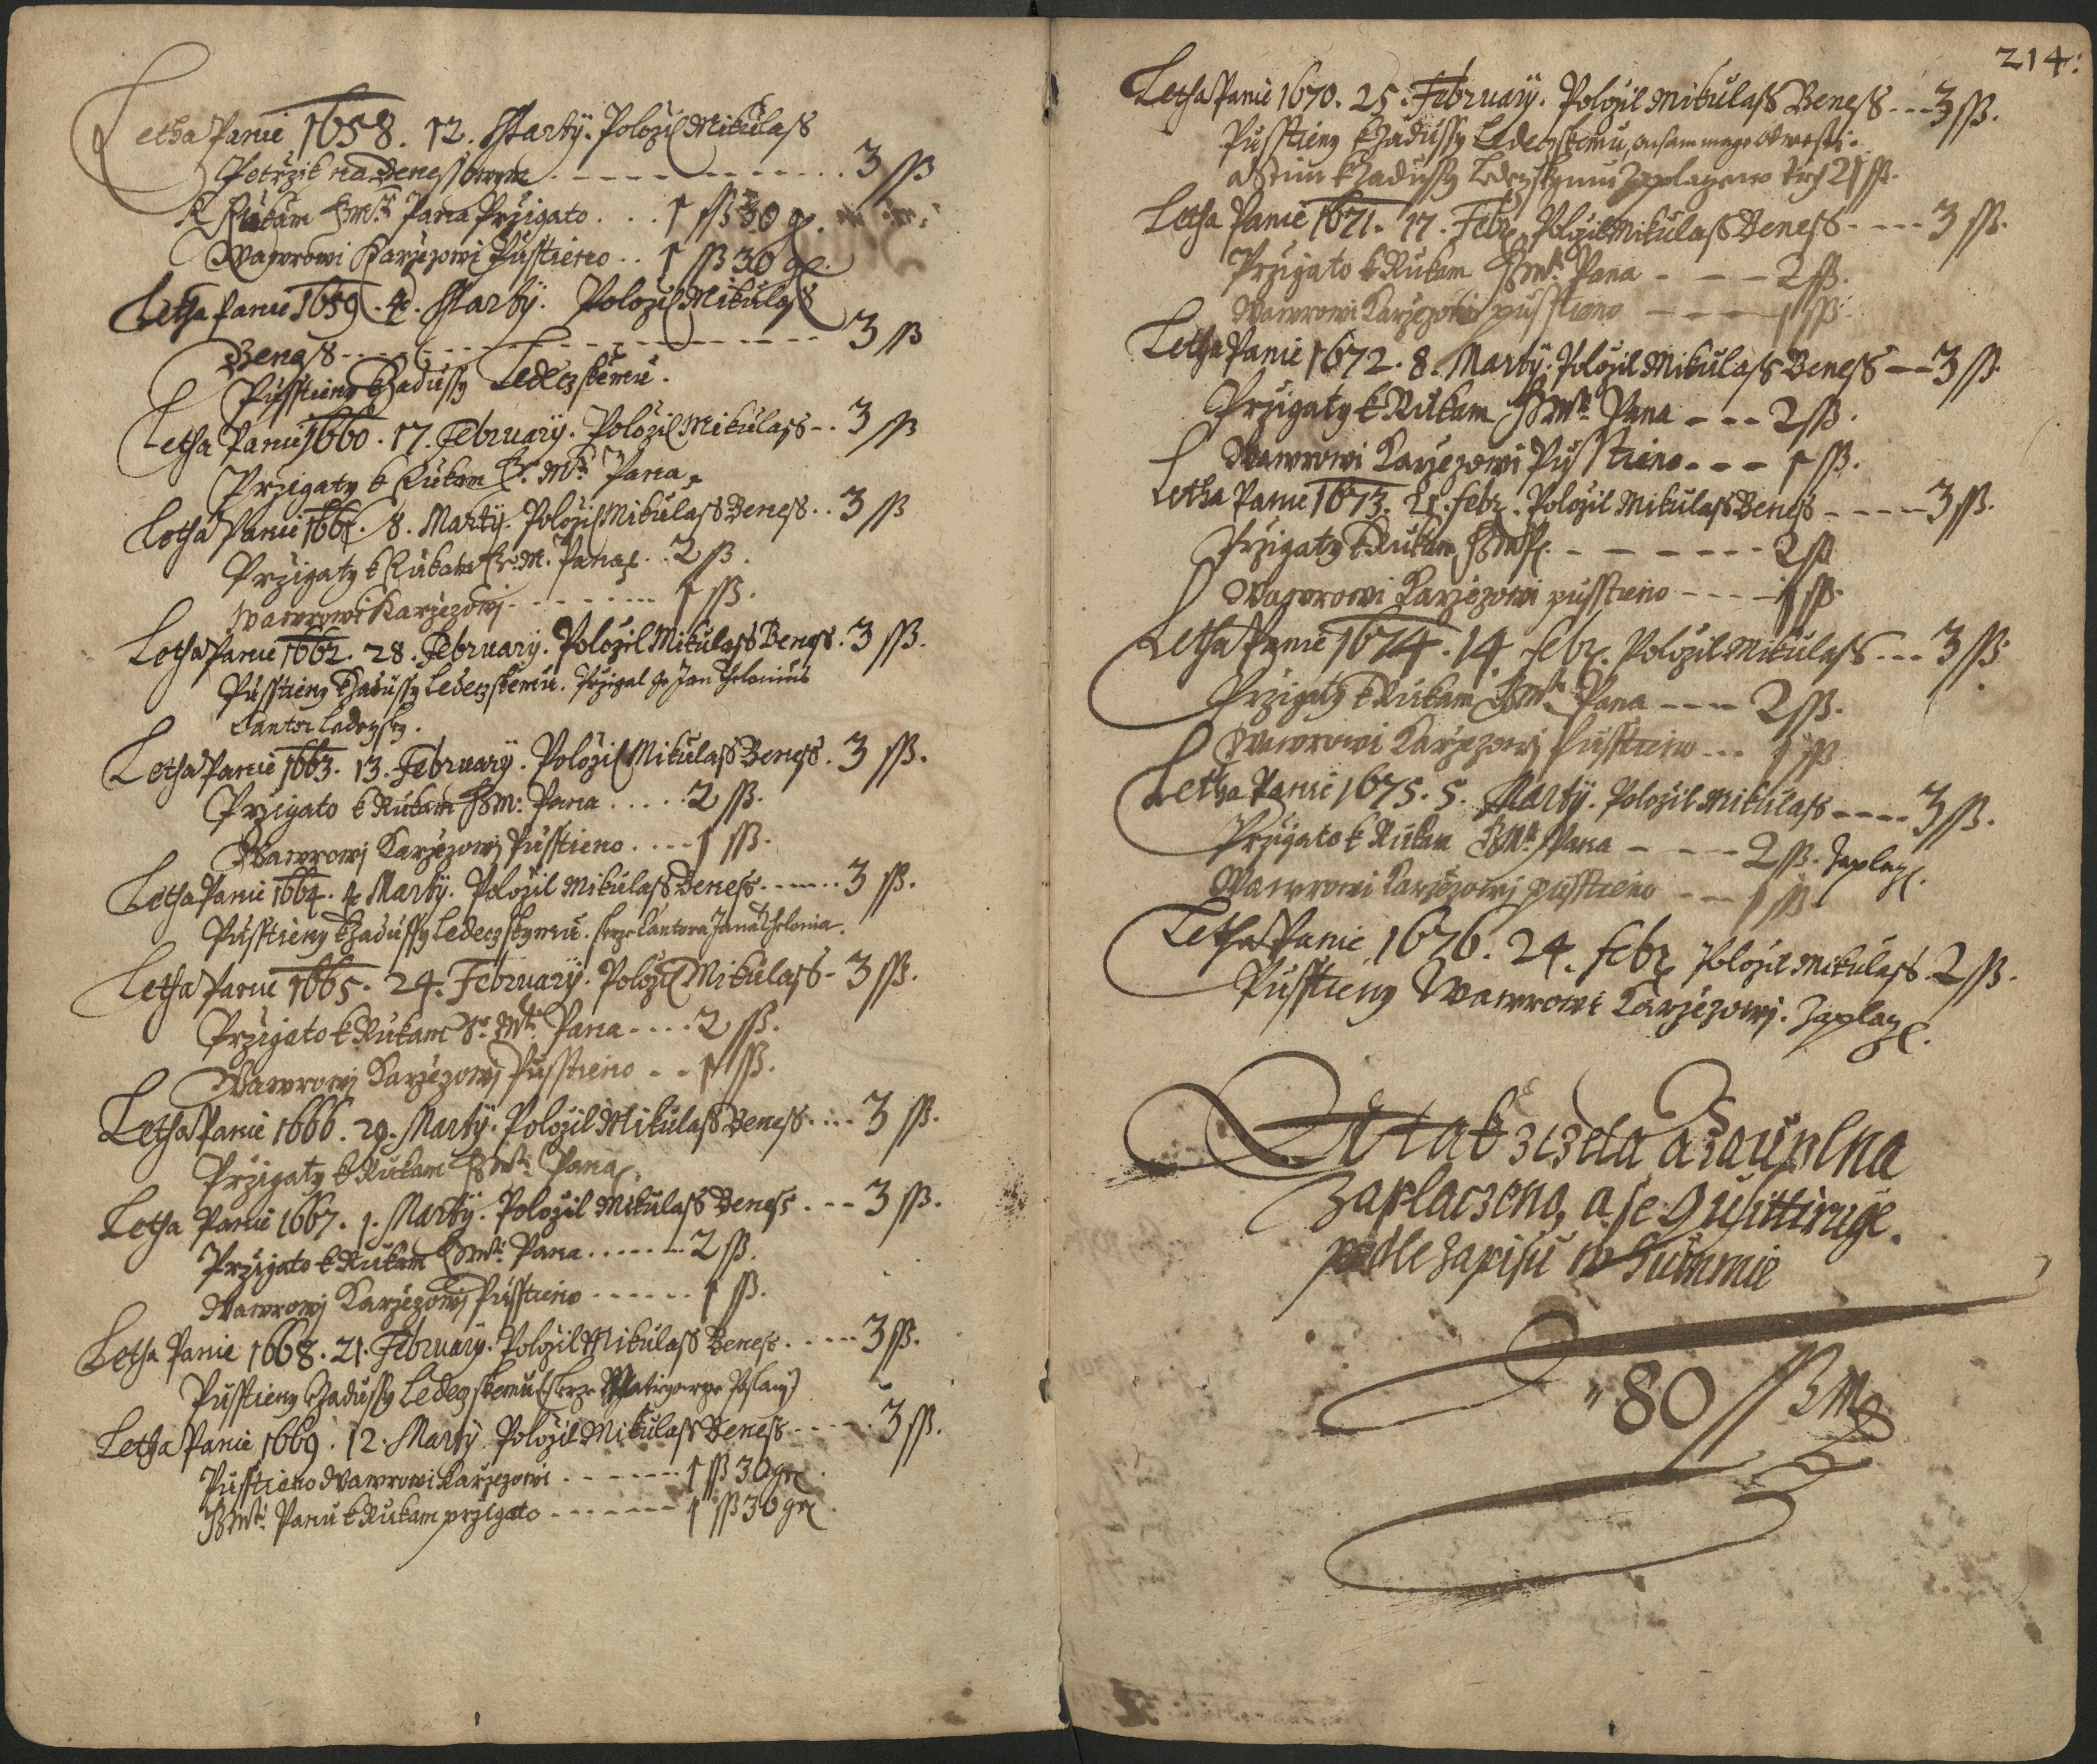 Letha Panie 1658. 12. Marty. Položil Mikulass
Petrzik na Benessowym - - - - - - 3 ss
K Rukam Jeho Mti Pana Przigato . . . 1 ss 30 g.
Wawrowi Karzezowi Pusstieno . . 1 ss 30 g.
Letha Panie 1659. 4. Marty. Položil Mikulass
Beness - - - - - - - - 3 ss
Pusstieny Zadussy Ledeczskemu.
Letha Panie 1660. 17. February. Položil Mikulass - . 3 ss
Przigaty k Rukam Mti Pana
Letha Panie 1661. 8. Marty. Položil Mikulass Beness . . 3 ss
Przigaty k Rukam M. Pana . . 2 ss.
Wawrowi Karzezowj - - - - - - 1 ss.
Letha Panie 1662. 28. February. Položil Mikulass Beness . 3 ss.
Pusstieny Zadussy Ledeczskemu. Przigal ge Jan Thelonius
Cantor Ledeczsky.
Letha Panie 1663. 13. February. Položil Mikulass Beness . 3 ss.
Przigato k Rukam M: Pana . . . . . 2 ss.
Wawrowj Karzezowj Pusstieno . . . . 1 ss.
Letha Panie 1664. 4 Marty. Položil Mikulass Beness . . . . . . 3 ss.
Pusstieny Zadussy Ledeczskymu. skrze Cantora Jana Thelonia.
Letha Panie 1665. 24. February. Položil Mikulass - 3 ss.
Przigato k Rukam Mti Pana . . . . 2 ss.
Wawrowj Karzezowj Pusstieno - - 1 ss.
Letha Panie 1666. 29. Marty. Položil Mikulass Beness . . . . 3 ss.
Przigaty k Rukam Mti Pana.
Letha Panie 1667. 1. Marty. Položil Mikulass Beness . - - 3 ss.
Przigato k Rukam Mti Pana . . . . . . 2 ss.
Wawrowj Karzezowj Pusstieno . . . . . . 1 ss.
Letha Panie 1668. 21. February. Položil Mikulass Beness . - - - - 3 ss.
Pusstieny Zadussy Ledeczskemu (skrze poslany)
Letha Panie 1669. 12. Marty. Položil Mikulass Beness - - - - . 3 ss.
Pusstieno Wawrowi Karzezowi . - - - - - 1 ss 30 gr
Mti Panu k Rukam przigato - - - - - - 1 ss 30 gr
214.
Letha Panie 1670. 25. February. Položil Mikulass Beness - - - 3 ss.
Pusstieny Zadussy Ledeczskemu, on sam ma ge odwesti.
a Stim Zadussy Ledeczskymu Zaplaczeno 21 ss.
Letha Panie 1671. 17. Febr. Položil Mikulass Beness - - - - 3 ss.
Przigato k Rukam Mti Pana - - - 2 ss.
Wawrowi Karzezowi pusstieno - - - - 1 ss.
Letha Panie 1672. 8. Marty. Položil Mikulass Beness - - 3 ss.
Przigaty k Rukam Mti Pana - - - 2 ss.
Wawrowi Karzezowi Pusstieno - - - 1 ss.
Letha Panie 1673. 21. Febr. Položil Mikulass Beness - - - - 3 ss.
Przigaty k Rukam - - - - - - 2 ss
Wawrowi Karzezowi pusstieno - - - - 1 ss.
Letha Panie 1674. 14. Febr. Položil Mikulass - - - 3 ss
Przigaty k Rukam Mti Pana - - - - 2 ss.
Wawrowi Karzezowj Pusstieno - - - 1 ss
Letha Panie 1675. 5. Marty. Položil Mikulass - - - - 3 ss.
Przigato k Rukam Mti Pana - - - - 2 ss. Zaplacz.
Wawrowi Karzezowj pusstieno - - 1 ss
Letha Panie 1676. 24. Febr. Položil Mikulass. 2 ss.
Pusstieny Wawrowi Karzezowj. Zaplacz.
A tak zczela a zauplna
Zaplaczeno, a se Qwittiruge.
podle Zapisu w Summie
80 ss M